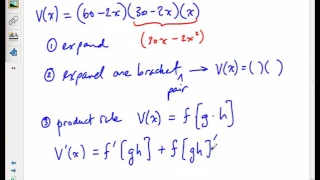 V(x) = (60-2x)(30-2x)(x)
① expand
(30x - 2x²)
② expand one bracket pair → V(x) = ( )( )
③ product rule V(x) = f[g·h]
V'(x) = f'[gh] + f[gh]'